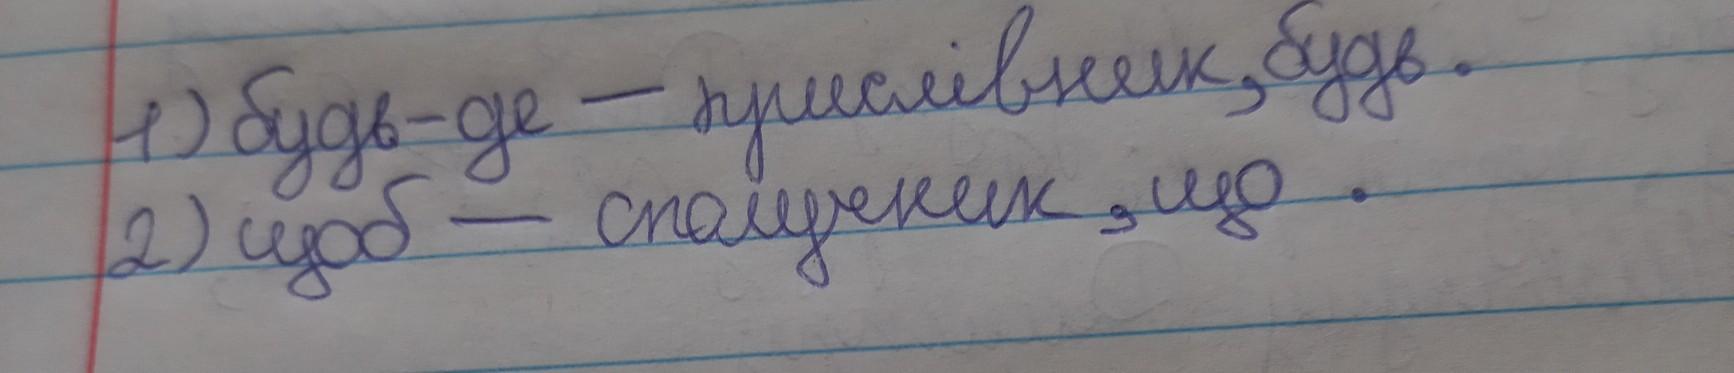 1) будь-де — прислівник, будь.
2) щоб — сполучник, що .